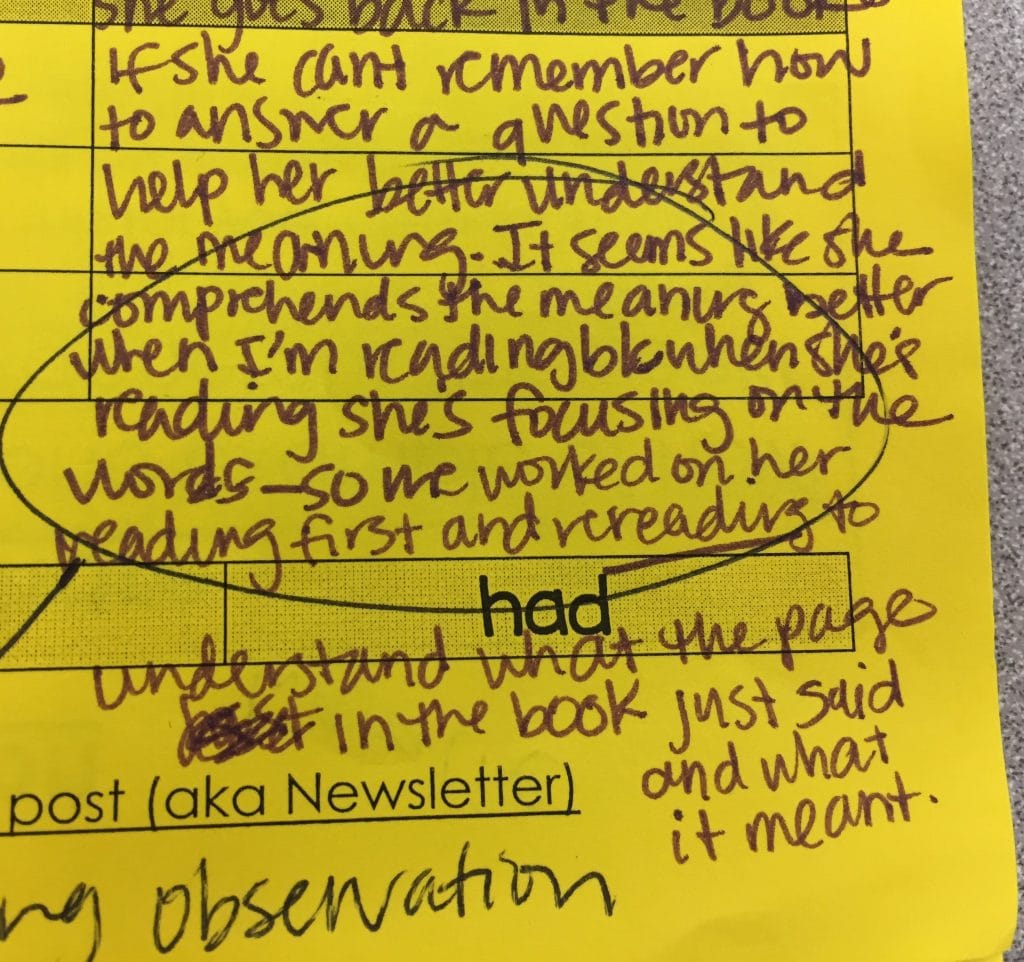 she goes back in the book
If she cant remember how
to answer a question to
help her better understand
the meaning. It seems like she
comprehends the meaning better
when I'm reading bk when she's
reading she's focusing on the
words - so we worked on her
reading first and rereading to
had
understand what the page
in the book just said
and what
it meant.
post (aka Newsletter)
ng observation